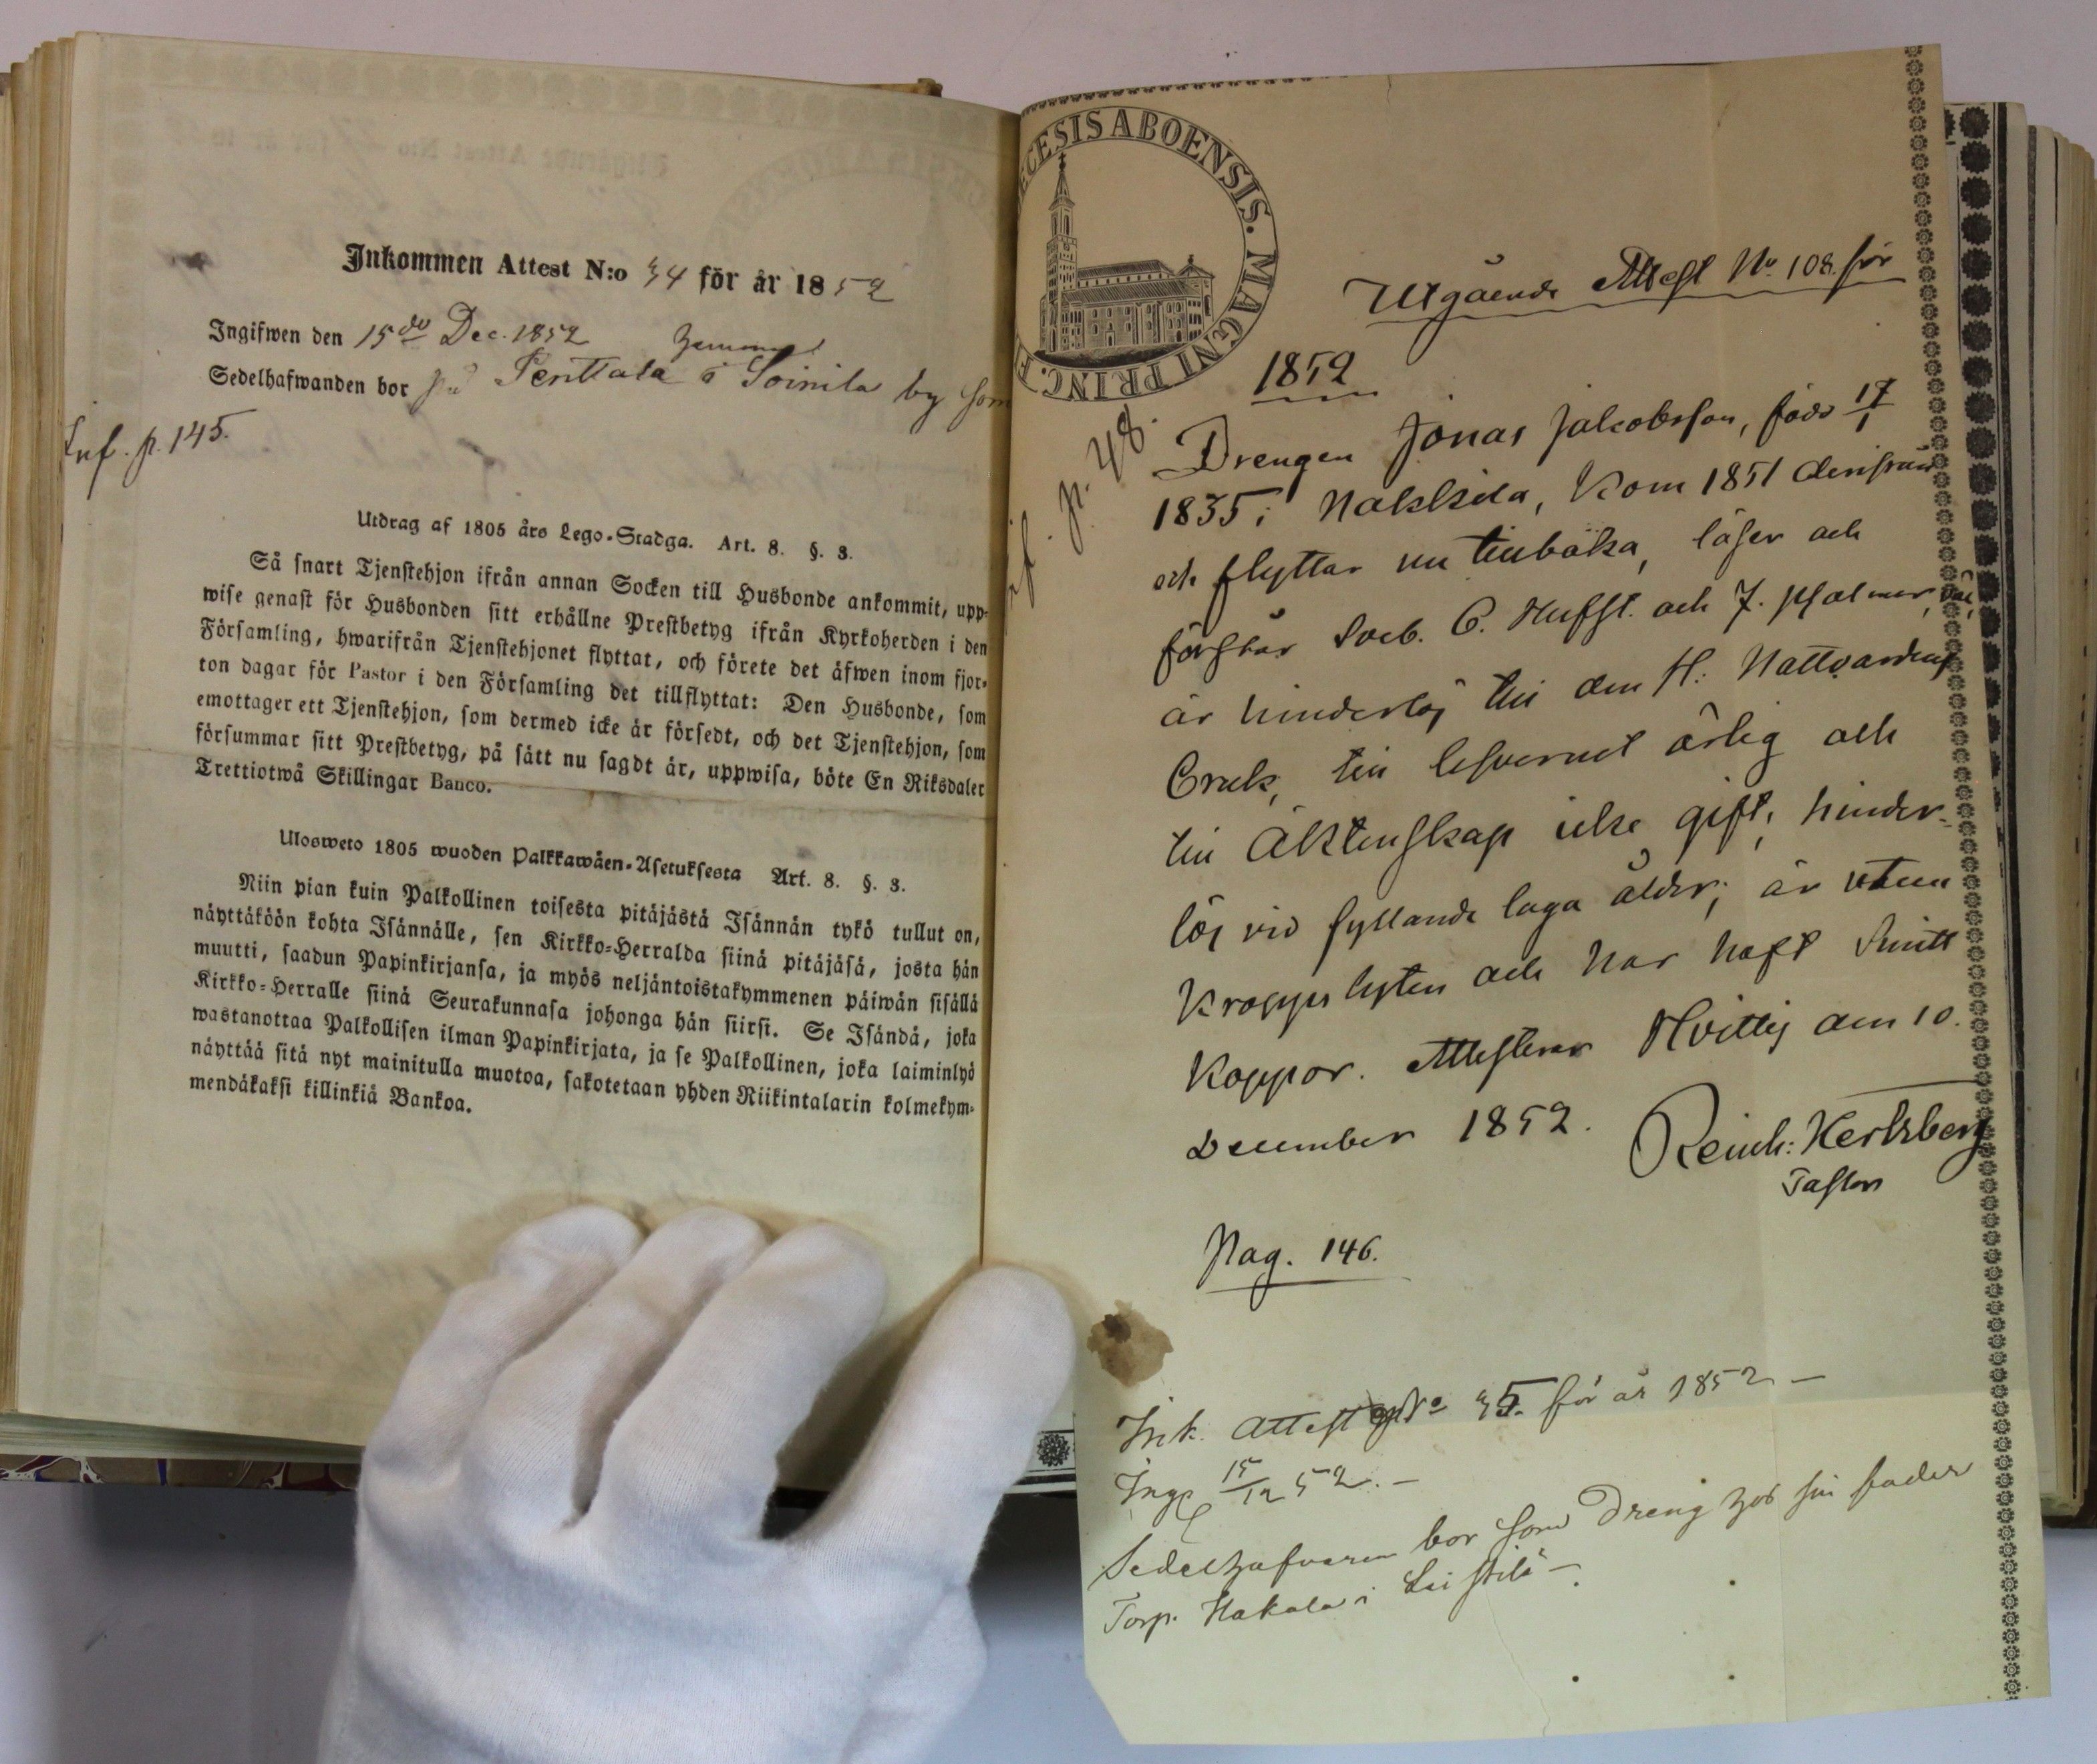 Inkommen Attest N:o 44 för år 1852
Ingifwen den 15de Dec. 1852
Sedelhafwanden bor på Penttala hemman i Soinila by som
Inf. p. 145.
Utdrag af 1805 års Lego-Stadga. Art. 8. §. 3.
Så snart Tjenstehjon ifrån annan Socken till Husbonde ankommit, upp-
wise genast för Husbonden sitt erhållne Prestbetyg ifrån Kyrkoherden i den
Församling, hwarifrån Tjenstehjonet flyttat, och förete det äfwen inom fjor-
ton dagar för Pastor i den Församling det tillflyttat: Den Husbonde, som
emottager ett Tjenstehjon, som dermed icke är försedt, och det Tjenstehjon, som
försummar sitt Prestbetyg, på sätt nu sagdt är, uppwisa, böte En Riksdaler
Trettiotwå Skillingar Banco.
Ulosweto 1805 wuoden Palkkawäen-Asetuksesta Art. 8. §. 3.
Niin pian kuin Palkollinen toisesta pitäjästä Isännän tykö tullut on,
näyttäköön kohta Isännälle, sen Kirkko-Herralda siinä pitäjäsä, josta hän
muutti, saadun Papinkirjansa, ja myös neljäntoistakymmenen päiwän sisällä
Kirkko-Herralle siinä Seurakunnasa johonga hän siirsi. Se Isändä, joka
wastanottaa Palkollisen ilman Papinkirjata, ja se Palkollinen, joka laiminlyö
näyttää sitä nyt mainitulla muotoa, sakotetaan yhden Riikintalarin kolmekym-
mendäkaksi killinkiä Bankoa.
ECESIS ABOENSIS. MAGNI PRINC. F
Utgående Attest No 108 för
1852
p. 48.
Drengen Jonas Jakobsson, född 17/1
1835 i Nakkila, kom 1851 derifrån
och flyttar nu tillbaka, läser och
förstår Sveb. C. Hufst. och 7. psalmer,
är hinderlös till den H: Nattvardens
Bruk, till lefvernet ärlig och
till Äktenskap icke gift, hinder-
lös vid fyllande laga ålder; är utan
kroppslyten och har haft Smitt
koppor. Attesterar Hvittis den 10.
December 1852. Reinh: Hertzberg
Pastor
Pag. 146.
Ink. Attest No 45. för år 1852 —
Ingf 15/12 52. —
Sedelhafvaren bor som Dreng hos sin fader
Torp. Hakala i Leistilä —